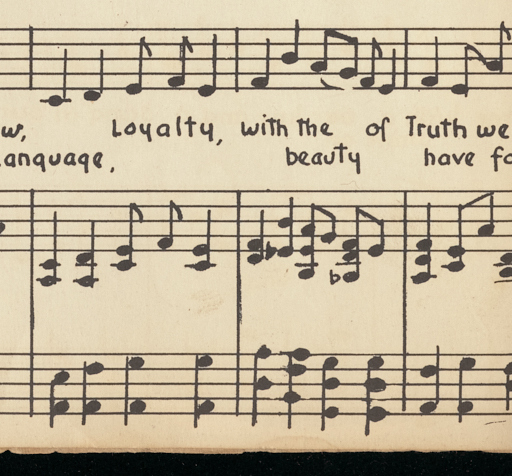 w, Loyalty, with the of Truth we
anguage, beauty have fo